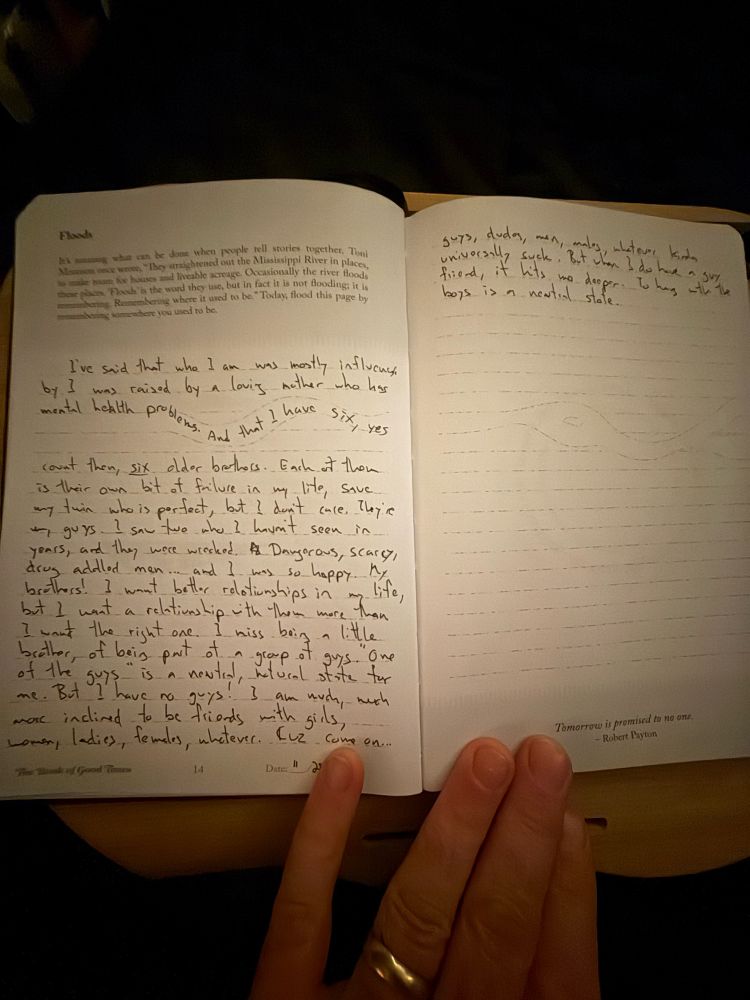 Floods
It's amazing what can be done when people tell stories together. Toni
Morrison once wrote, "They straightened out the Mississippi River in places,
to make room for houses and liveable acreage. Occasionally the river floods
these places. 'Floods' is the word they use, but in fact it is not flooding; it is
remembering. Remembering where it used to be." Today, flood this page by
remembering somewhere you used to be.
I've said that who I am was mostly influenced
by I was raised by a loving mother who has
mental health problems. And that I have six, yes
count them, six older brothers. Each of them
is their own bit of failure in my life, save
my twin who is perfect, but I don't care. They're
my guys. I saw two who I havn't seen in
years, and they were wrecked. Dangerous, scarey,
drug addled men... and I was so happy. My
brothers! I want better relationships in my life,
but I want a relationship with them more than
I want the right one. I miss being a little
brother, of being part of a group of guys. "One
of the guys" is a neutral, natural state for
me. But I have no guys! I am much, much
more inclined to be friends with girls,
women, ladies, females, whatever. Cuz come on...
The Book of Good Times
14
Date: 11
guys, dudes, men, males, whatever, kinda
universally suck. But when I do have a guy
friend, it hits me deeper. To hang with the
boys is a neutral state.
Tomorrow is promised to no one.
– Robert Payton